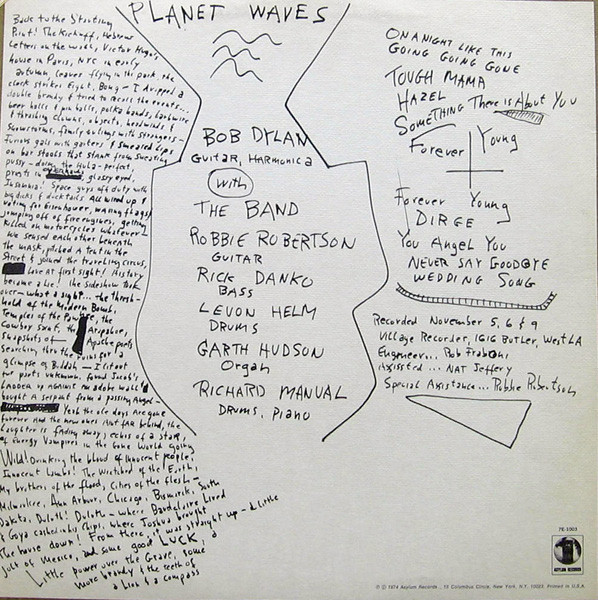 PLANET WAVES
Back to the Starting
Point! The Kickoff, Hebrew
Letters on the wall, Victor Hugo's
house in Paris, NYC in early
autumn, leaves flying in the park, the
clock strikes Eight, Bong - I dropped a
double brandy & tried to recall the events...
beer halls & pin balls, polka bands, barbwire
& thrashing clowns, objects, headwinds &
snowstorms, family outings with strangers -
Furious gals with garters & smeared Lips
on bar stools that stank from sweating
pussy - doing the Hula - perfect,
priests in glassy eyed
Insomnia! Space guys off duty with
big dicks & ducktails All wired up &
voting for Eisenhower, waving flags &
jumping off of fire engines, getting
killed on motorcycles whatever -
We sensed each other beneath
the MASK, pitched A tent in the
Street & joined the traveling circus,
Love At first sight! History
became a lie! the sideshow took
over - what a sight... the thresh-
hold of the Modern Bomb,
Temples of the Pawnee, the
Cowboy saint, the Arapahoe,
snapshots of Apache poets
searching thru the ruins for a
glimpse of Buddah - I lit out
for parts unknown, found Jacob's
Ladder up against an adobe wall &
bought A serpent from a passing Angel -
Yeah the ole days Are gone
forever And the new ones Aint far behind, the
Laughter is fading away, echos of a star,
of Energy Vampires in the Gone World going
Wild! Drinking the blood of innocent people,
Innocent Lambs! The Wretched of the Earth,
My brothers of the flood, Cities of the flesh -
Milwaukee, Ann Arbor, Chicago, Bismarck, South
Dakota, Duluth! Duluth - where Baudelaire Lived
& Goya cashed in his Chips, where Joshua brought
the house down! From there, it was straight up - a Little
jolt of Mexico, and some good LUCK, a
Little power over the Grave, some
more brandy & the teeth of
a Lion & a compass
BOB DYLAN
GUITAR, HARMONICA
with
THE BAND
ROBBIE ROBERTSON
GUITAR
RICK DANKO
BASS
LEVON HELM
DRUMS
GARTH HUDSON
Organ
RICHARD MANUAL
DRUMS, PIANO
ON A NIGHT LIKE THIS
GOING GOING GONE
TOUGH MAMA
HAZEL
SOMETHING There is About You
Forever Young
Forever Young
DIRGE
You Angel You
NEVER SAY GOODBYE
WEDDING SONG
Recorded November 5, 6 & 9
Village Recorder, 1616 Butler, West LA
Engeneer... Rob Fraboni
Assisted... NAT Jeffery
Special Assistance... Robbie Robertson
7E-1003
ASYLUM RECORDS
© ℗ 1974 Asylum Records, 15 Columbus Circle, New York, N.Y. 10023. Printed in U.S.A.